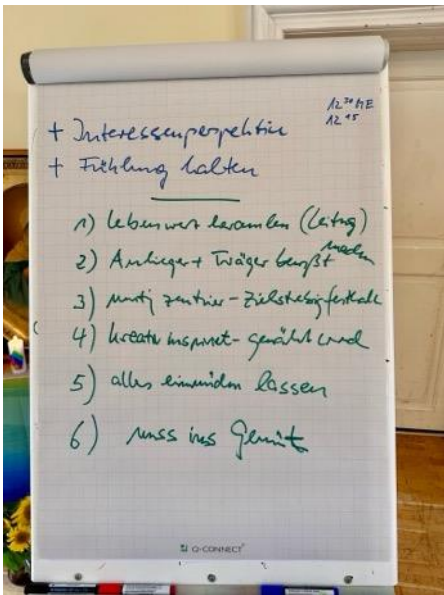 12³⁰ ME
12¹⁵
+ Interessenperspektive
+ Fühlung halten
1) lebenswert (Leitung)
2) Anlieger + Träger bewußt machen
3) mutig zentrier -
4) kreativ inspiriert - genährt wird
5) alles einmünden lassen
6) muss ins Gemüt
Q-CONNECT